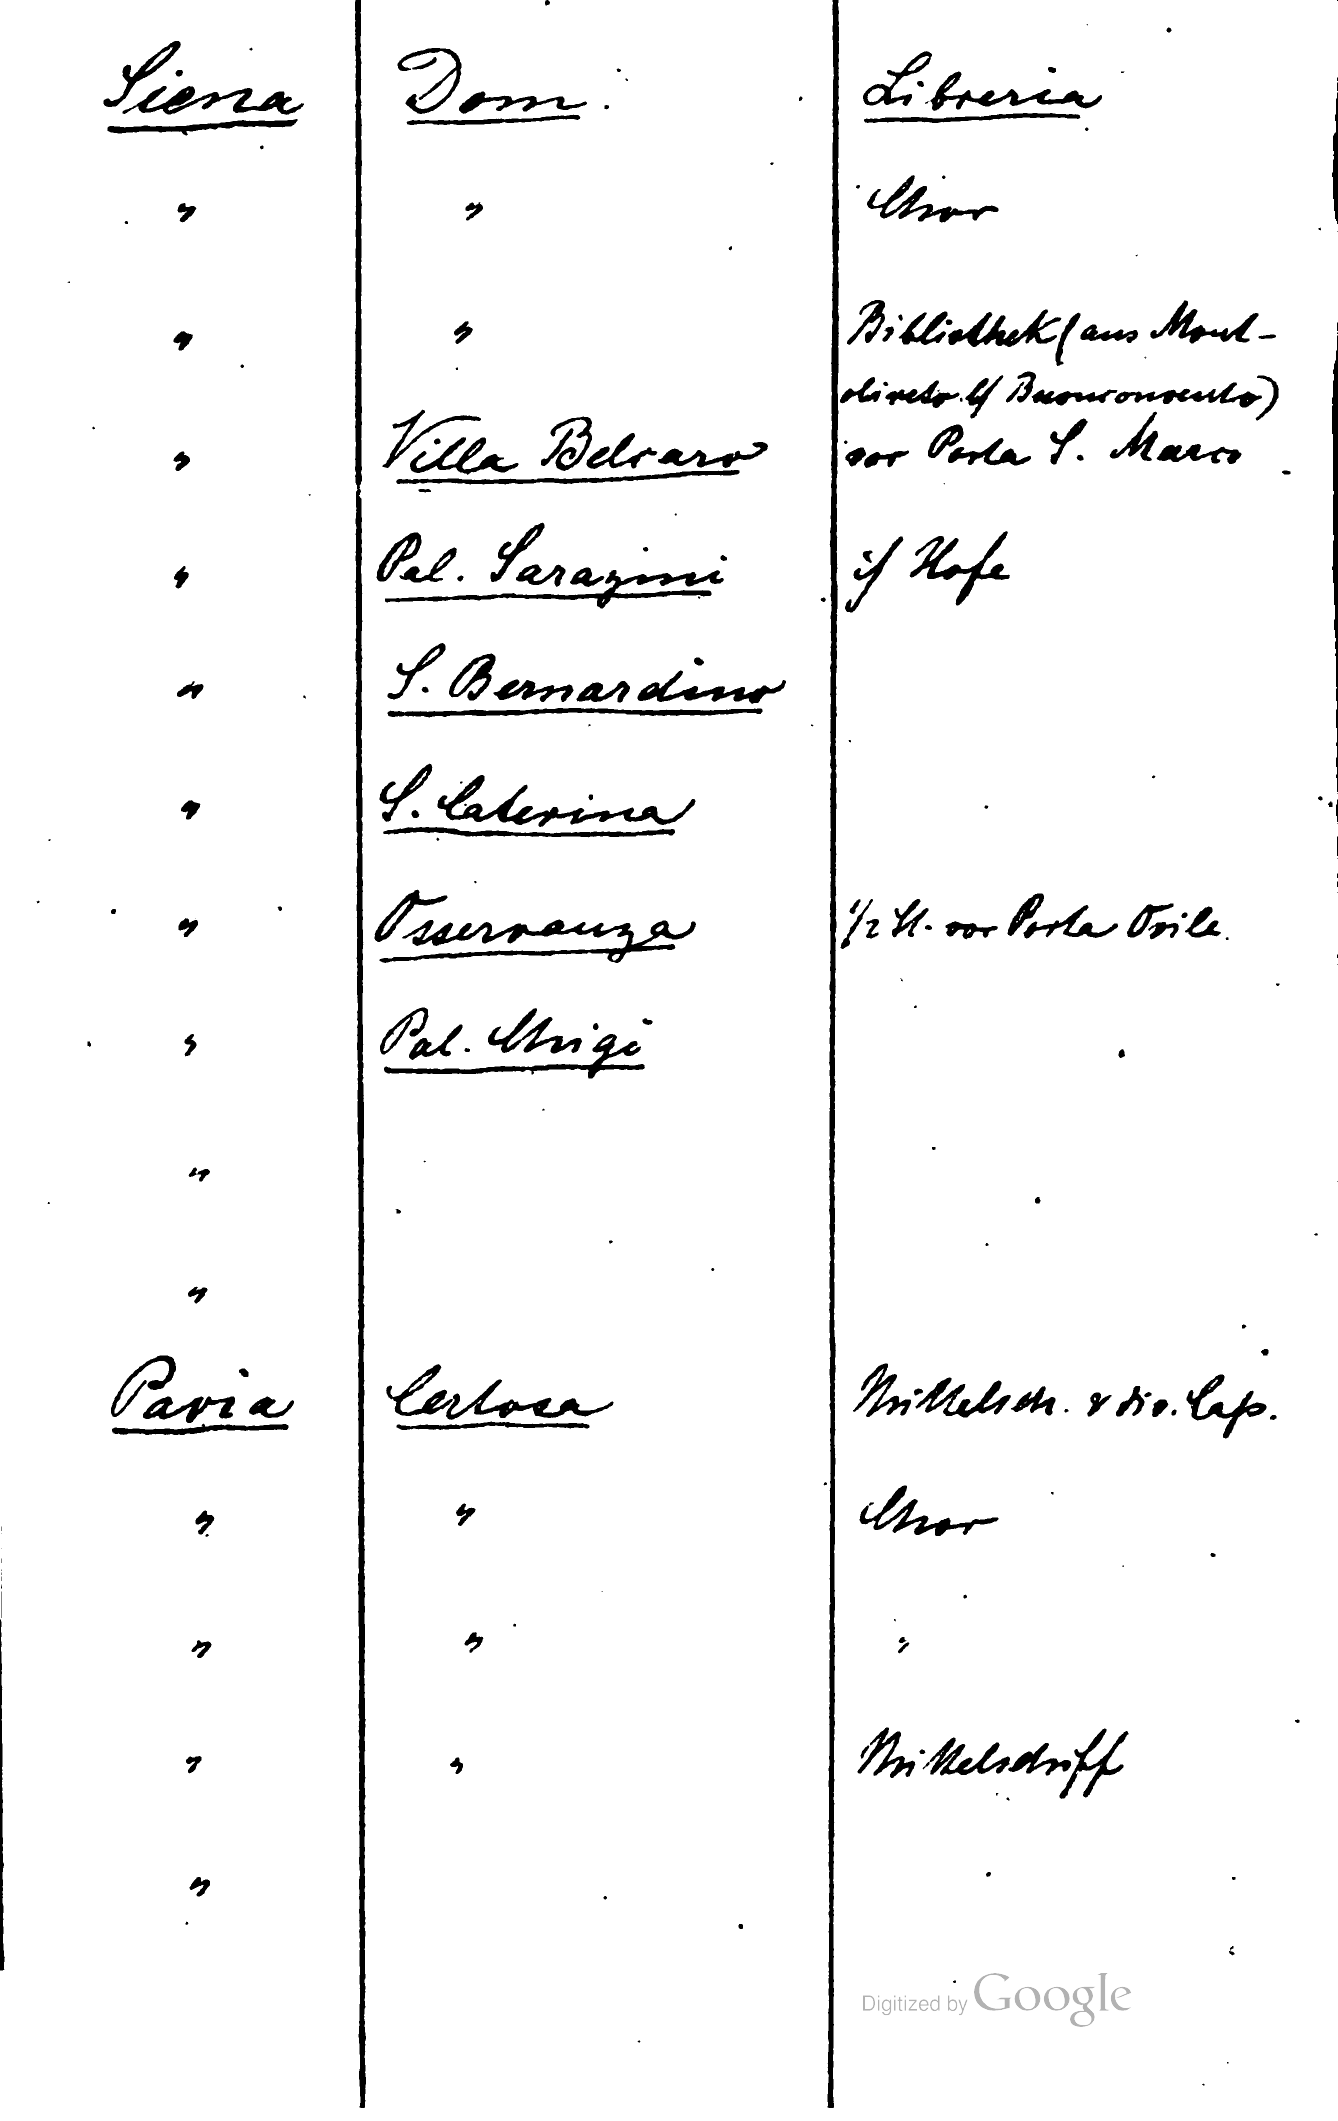 Siena Dom. Libreria
" " Chor
" " Bibliothek (aus Mont-
oliveto b/ Buonconvento)
" Villa Belcaro vor Porta S. Marco
" Pal. Sarazini i/ Hofe
" S. Bernardino
" S. Caterina
" Osservanza 1/2 St. vor Porta Ovile.
" Pal. Chigi
"
"
Pavia Certosa Mittelsch. & div. Cap.
" " Chor
" " "
" " Mittelschiff
"
Digitized by Google